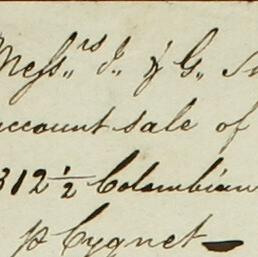 Mess,,rs J,, & G,,
account sale of
312 1/2 Colombian
p Cygnet —